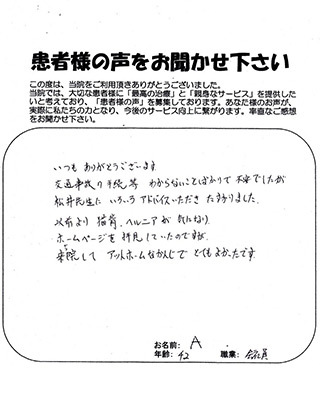 患者様の声をお聞かせ下さい
この度は、当院をご利用頂きありがとうございました。
当院では、大切な患者様に「最高の治療」と「親身なサービス」を提供した
いと考えており、「患者様の声」を募集しております。あなた様のお声が、
実際に私たちの力となり、今後のサービス向上に繋がります。率直なご感想
をお聞かせ下さい。
いつも ありがとうございます
交通事故の手続等 わからないことばかりで 大変でしたが
松井先生に いろいろ アドバイスいただき たすかりました.
以前より 猫背、ヘルニアが 気になり、
ホームページを 拝見していたのですが
来院して アットホームなかんじで とてもよかったです
お名前: A
年齢: 42 職業: 会社員